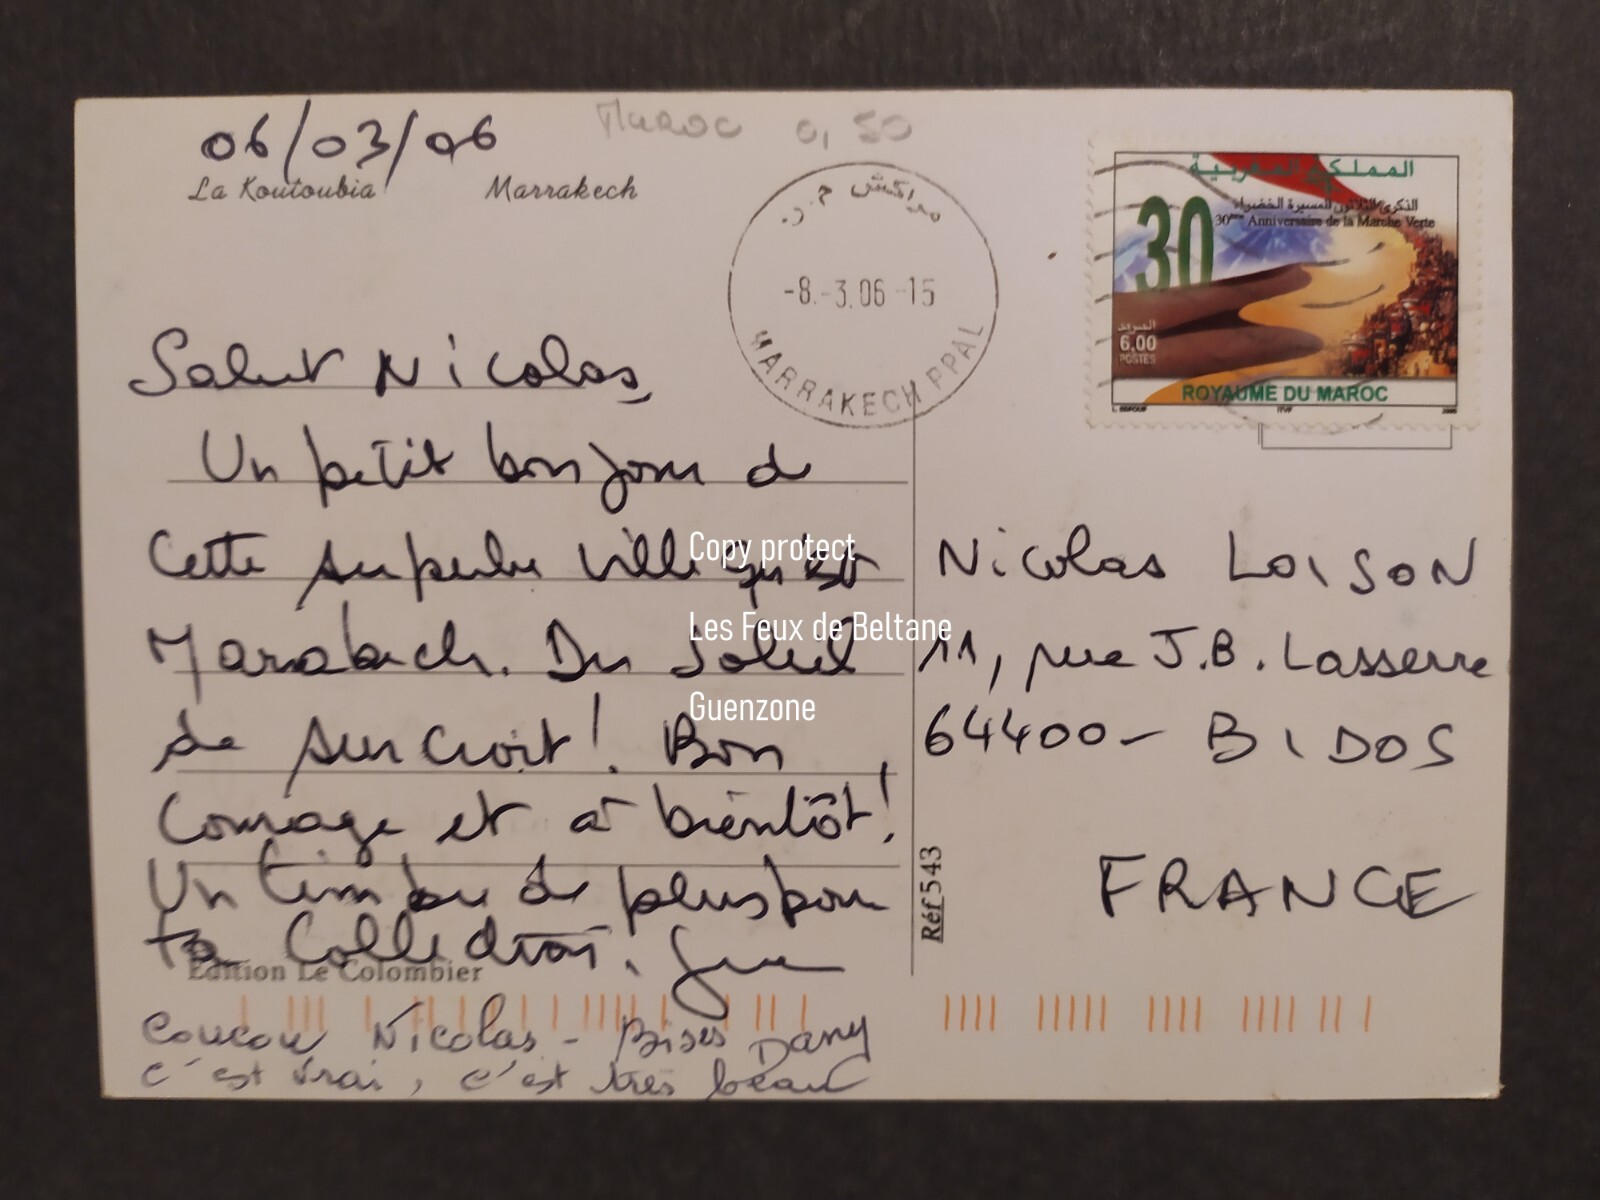 Maroc 0,50
06/03/06
La Koutoubia Marrakech
مراكش م.ر.
-8.-3.06-15
MARRAKECH PPAL
المملكة المغربية
الذكرى الثلاثون للمسيرة الخضراء
30ème Anniversaire de la Marche Verte
30
البريد
6,00
POSTES
ROYAUME DU MAROC
ITVF 2005
Salut Nicolas,
Un petit bonjour de
cette superbe ville qu'est
Marrakech. Du soleil
de surcroit! Bon
courage et à bientôt!
Un timbre de plus pour
ta collection!
Edition Le Colombier
Coucou Nicolas - Bises Dany
c'est vrai, c'est très beau
Nicolas LOISON
11, rue J.B. Lasserre
64400 - BIDOS
FRANCE
Réf 543
Copy protect
Les Feux de Beltane
Guenzone